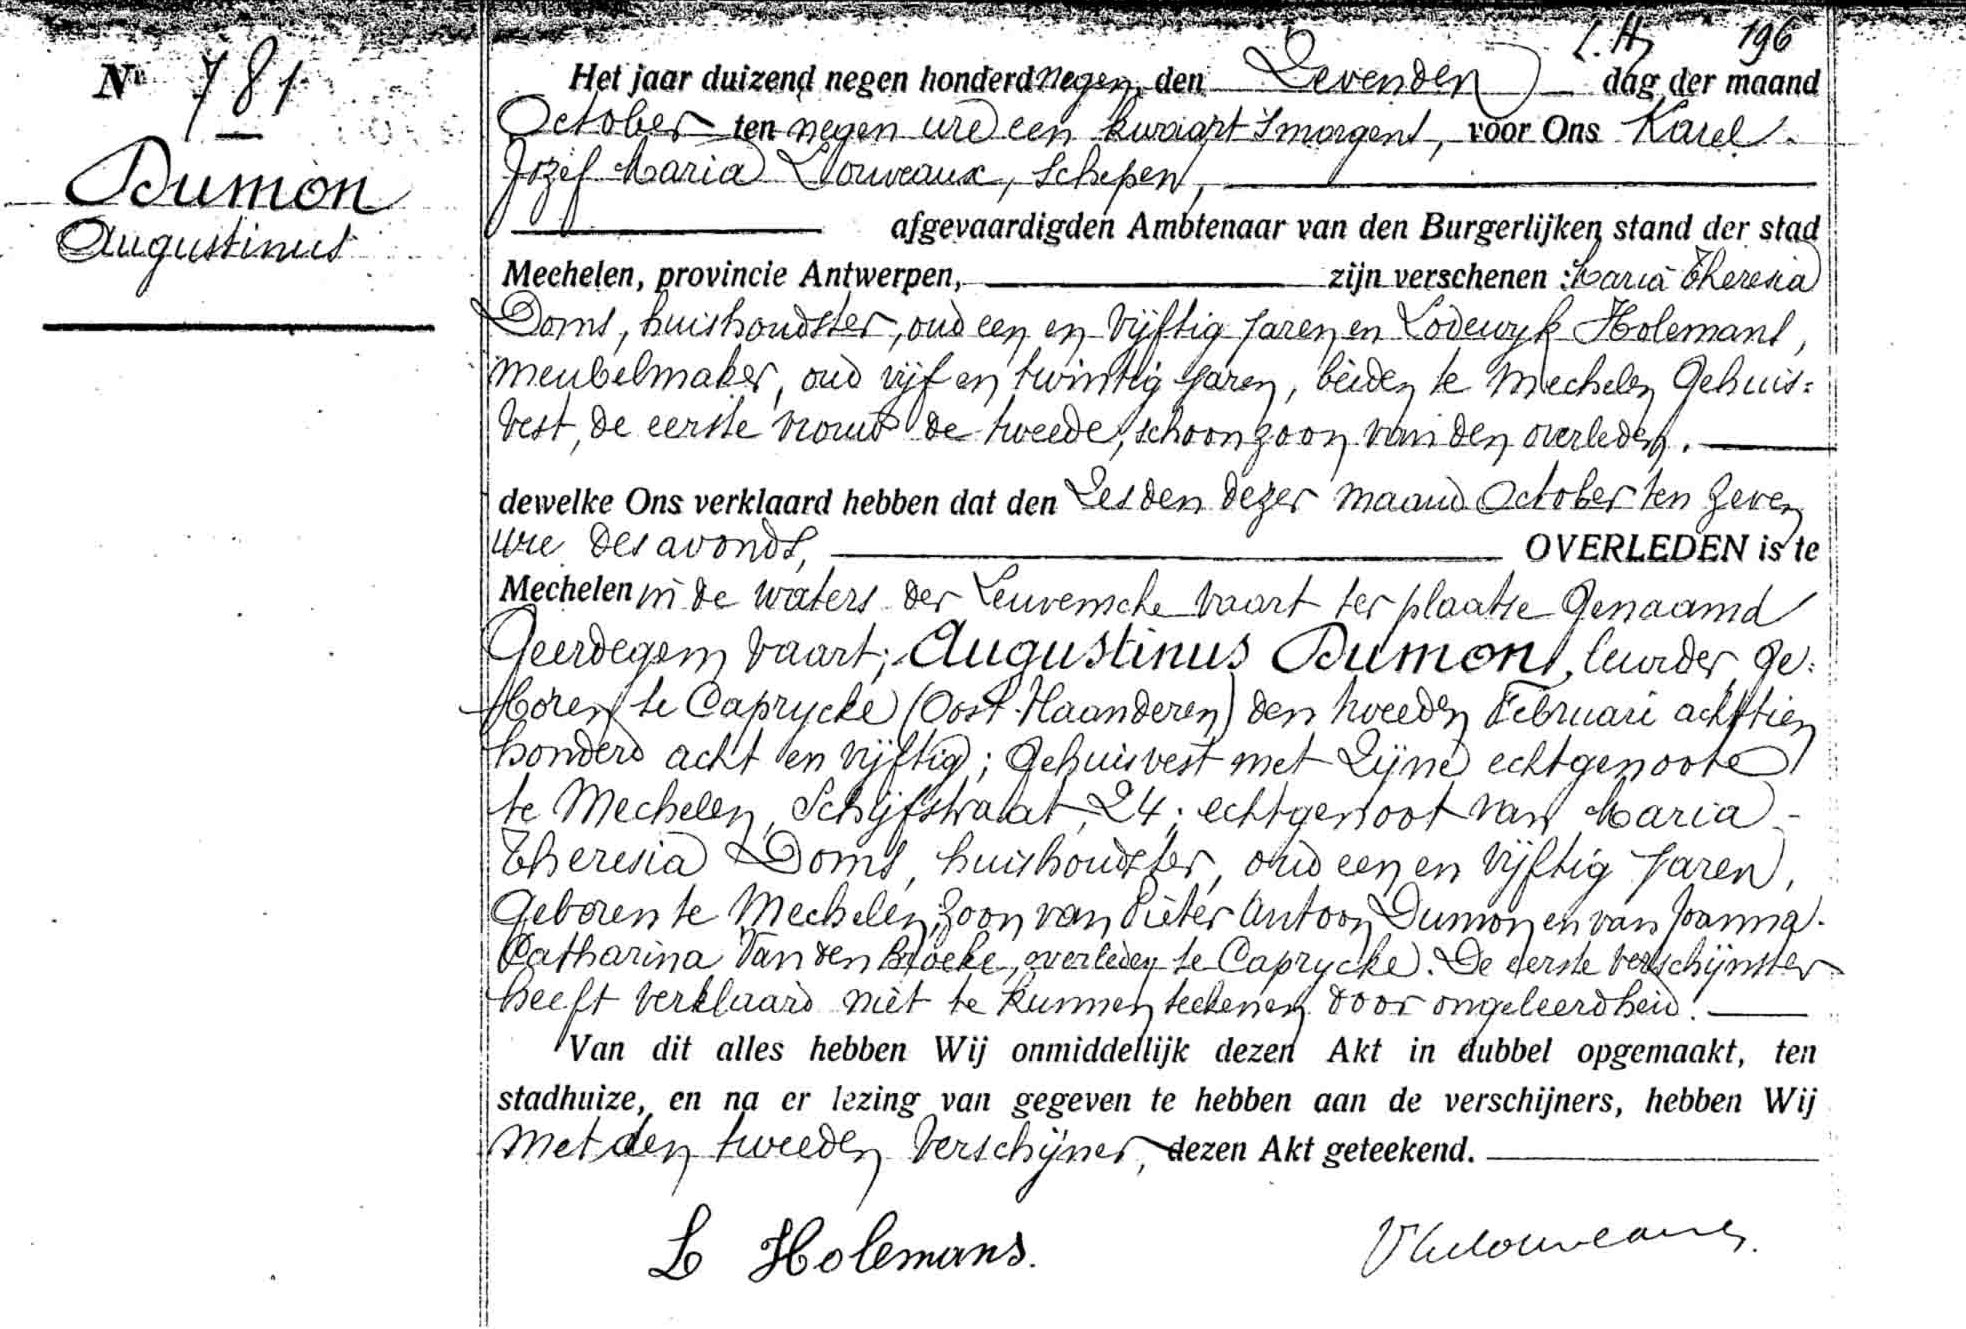 L. H. 196
Nr 781
Dumon
Augustinus
Het jaar duizend negen honderd negen, den Zevenden dag der maand
October ten negen ure een kwaart 's morgens, voor Ons Karel
Jozef Maria Douveaux, Schepen,
afgevaardigden Ambtenaar van den Burgerlijken stand der stad
Mechelen, provincie Antwerpen, zijn verschenen : Maria Theresia
Doms, huishoudster, oud een en vijftig jaren en Lodewyk Holemans,
meubelmaker, oud vijf en twintig jaren, beiden te Mechelen gehuis=
vest, de eerste vrouw de tweede, schoonzoon van den overleden.
dewelke Ons verklaard hebben dat den Zesden dezer maand October ten zeven
ure des avonds, OVERLEDEN is te
Mechelen in de waters der Leuvensche vaart ter plaatse genaamd
Geerdegem vaart; Augustinus Dumon, leurder, ge=
boren te Caprycke (Oost-Vlaanderen) den tweeden Februari achttien
honderd acht en vijftig; gehuisvest met zijne echtgenoote
te Mechelen, Schijfstraat, 24; echtgenoot van Maria
Theresia Doms, huishoudster, oud een en vijftig jaren,
geboren te Mechelen; zoon van Pieter Antoon Dumon en van Joanna
Catharina Van den Broeke, overleden te Caprycke. De eerste verschijnster
heeft verklaard niet te kunnen teekenen door ongeleerdheid.
Van dit alles hebben Wij onmiddellijk dezen Akt in dubbel opgemaakt, ten
stadhuize, en na er lezing van gegeven te hebben aan de verschijners, hebben Wij
met den tweeden verschijner, dezen Akt geteekend.
L Holemans.